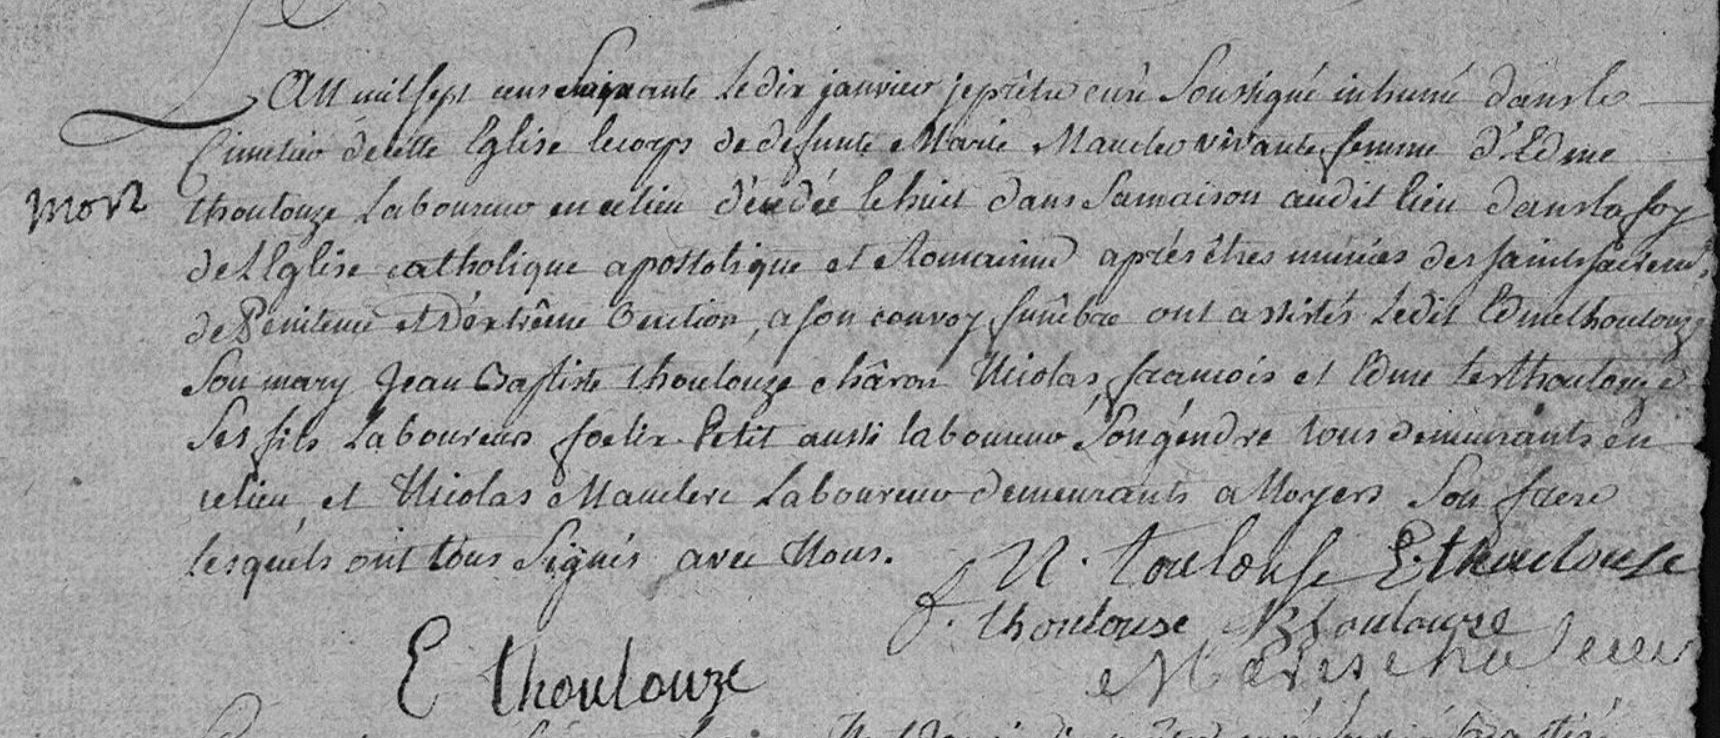 L'An mil sept cens soixante le dix janvier je prêtre curé soussigné inhumé dans le
Cimetier de cette Eglise le corps de defunte Marie Maucler vivante femme d'Edme
mort
thoulouze Laboureur en ce lieu décédée le huit dans sa maison audit lieu dans la foy
de L'Eglise catholique apostolique et Romainne aprés êtres muniés des saints sacrem.
de Penitence et d'éxtrême Onction, a son convoy funêbre ont assistés Ledit Edme thoulouze
son mary Jean Baptiste thoulouze châron Nicolas, francois et Edme les thoulouze
ses fils Laboureurs foelix Petit aussi laboureur son géndre tous demeurants en
ce lieu, et Nicolas Mauclere Laboureur demeurants a Noyers son frere
lesquéls ont tous signés avec Nous.
N. toulouse E. thoulouse
f. thoulouse thoulouze
E thoulouze